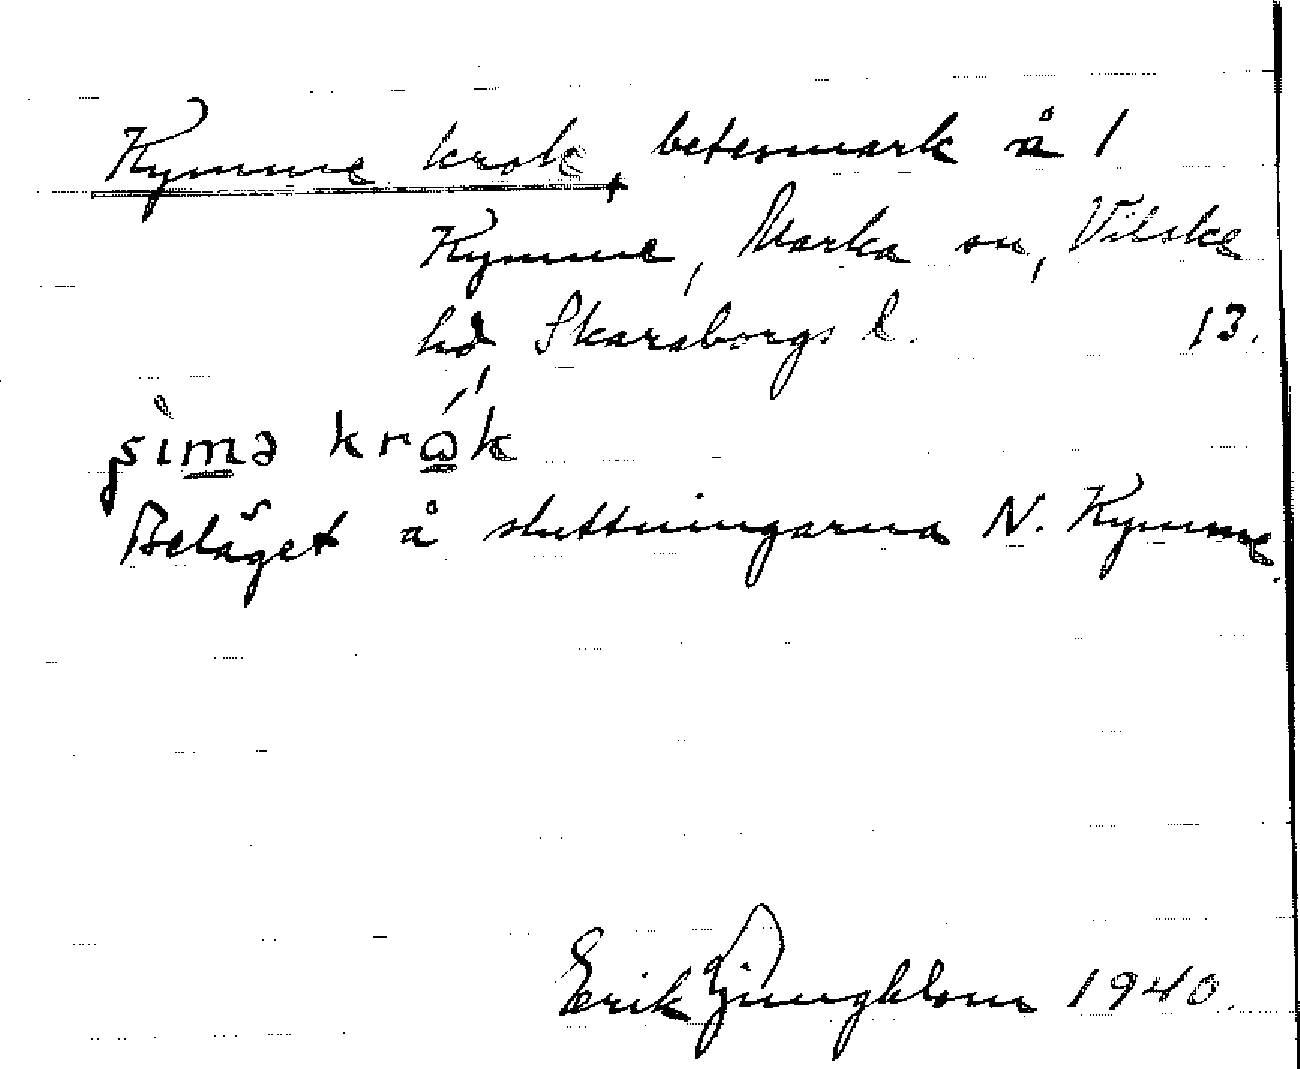 Kymme krok, betesmark å 1
Kymme, Marka sn, Vilske
hd Skaraborgs l. 13.
simə krok
Beläget å sluttningarna N. Kymme.
Erik Ljungblom 1940.